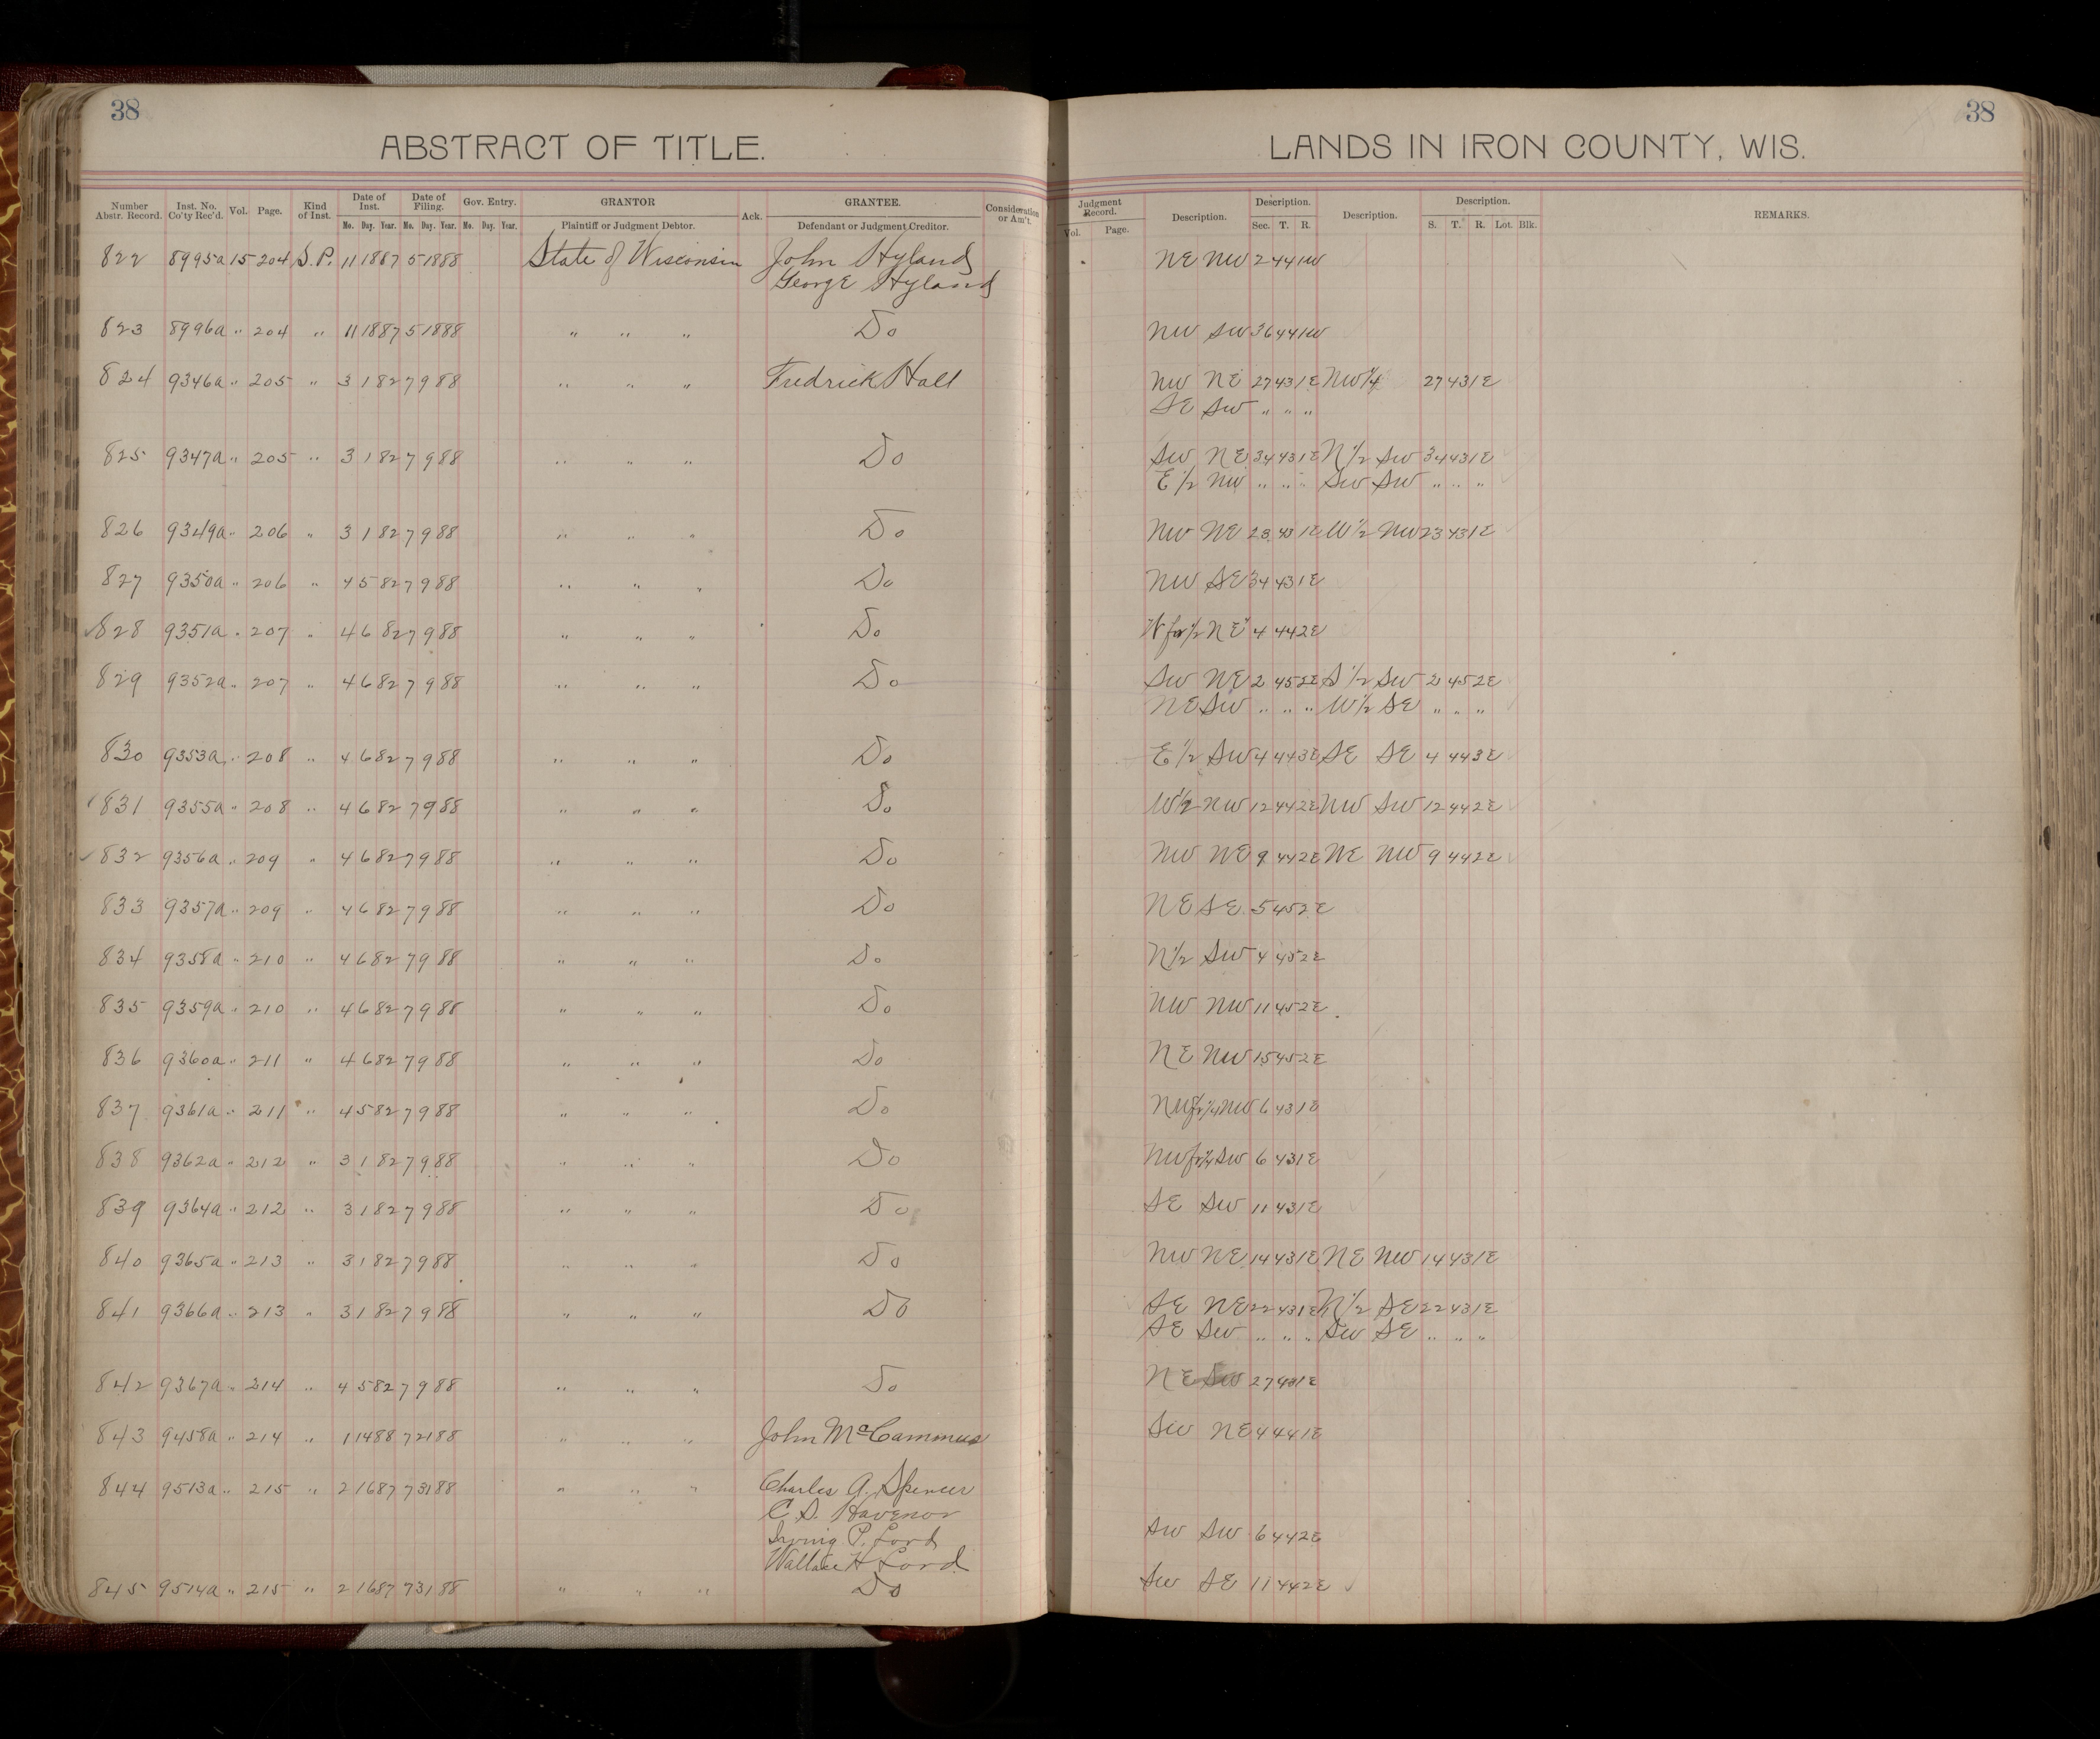 38
ABSTRACT OF TITLE.
LANDS IN IRON COUNTY, WIS.
38
Number Abstr. Record. Inst. No. Co'ty Rec'd. Vol. Page. Kind of Inst. Date of Inst. Mo. Day. Year. Date of Filing. Mo. Day. Year. Gov. Entry. Mo. Day. Year. GRANTOR Plaintiff or Judgment Debtor. Ack. GRANTEE. Defendant or Judgment Creditor. Consideration or Am't. Judgment Record. Vol. Page. Description. Description. Sec. T. R. Description. Description. S. T. R. Lot. Blk. REMARKS.
822 8995a 15 204 S.P. 11 18 87 5 18 88 State of Wisconsin John Hyland NE NW 2 44 1W
George Hyland
823 8996a " 204 " 11 18 87 5 18 88 " " " Do NW SW 36 44 1W
824 9346a " 205 " 3 1 82 7 9 88 " " " Fredrick Hall NW NE 27 43 1E NW 1/4 27 43 1E
SE SW " " "
825 9347a " 205 " 3 1 82 7 9 88 " " " Do SW NE 34 43 1E N 1/2 SW 34 43 1E
E 1/2 NW " " " SW SW " " "
826 9349a " 206 " 3 1 82 7 9 88 " " " Do NW NE 23 43 1E W 1/2 NW 23 43 1E
827 9350a " 206 " 4 5 82 7 9 88 " " " Do NW SE 34 43 1E
828 9351a " 207 " 4 6 82 7 9 88 " " " Do W fr 1/2 NE 4 44 2E
829 9352a " 207 " 4 6 82 7 9 88 " " " Do SW NE 2 45 2E S 1/2 SW 2 45 2E
NE SW " " " W 1/2 SE " " "
830 9353a " 208 " 4 6 82 7 9 88 " " " Do E 1/2 SW 4 44 3E SE SE 4 44 3E
831 9355a " 208 " 4 6 82 7 9 88 " " " Do W 1/2 NW 12 44 2E NW SW 12 44 2E
832 9356a " 209 " 4 6 82 7 9 88 " " " Do NW NE 9 44 2E NE NW 9 44 2E
833 9357a " 209 " 4 6 82 7 9 88 " " " Do NE SE 5 45 2E
834 9358a " 210 " 4 6 82 7 9 88 " " " Do N 1/2 SW 4 45 2E
835 9359a " 210 " 4 6 82 7 9 88 " " " Do NW NW 11 45 2E
836 9360a " 211 " 4 6 82 7 9 88 " " " Do NE NW 15 45 2E
837 9361a " 211 " 4 5 82 7 9 88 " " " Do NW fr 1/4 NW 6 43 1E
838 9362a " 212 " 3 1 82 7 9 88 " " " Do NW fr 1/4 SW 6 43 1E
839 9364a " 212 " 3 1 82 7 9 88 " " " Do SE SW 11 43 1E
840 9365a " 213 " 3 1 82 7 9 88 " " " Do NW NE 14 43 1E NE NW 14 43 1E
841 9366a " 213 " 3 1 82 7 9 88 " " " Do SE NE 22 43 1E N 1/2 SE 22 43 1E
SE SW " " " SW SE " " "
842 9367a " 214 " 4 5 82 7 9 88 " " " Do NE SW 27 43 1E
843 9458a " 214 " 1 14 88 7 21 88 " " " John McCammus SW NE 4 44 1E
844 9513a " 215 " 2 16 87 7 31 88 " " " Charles A. Spencer
C. S. Havenor
Irving P. Lord SW SW 6 44 2E
Wallace H Lord
845 9514a " 215 " 2 16 87 7 31 88 " " " Do SW SE 11 44 2E